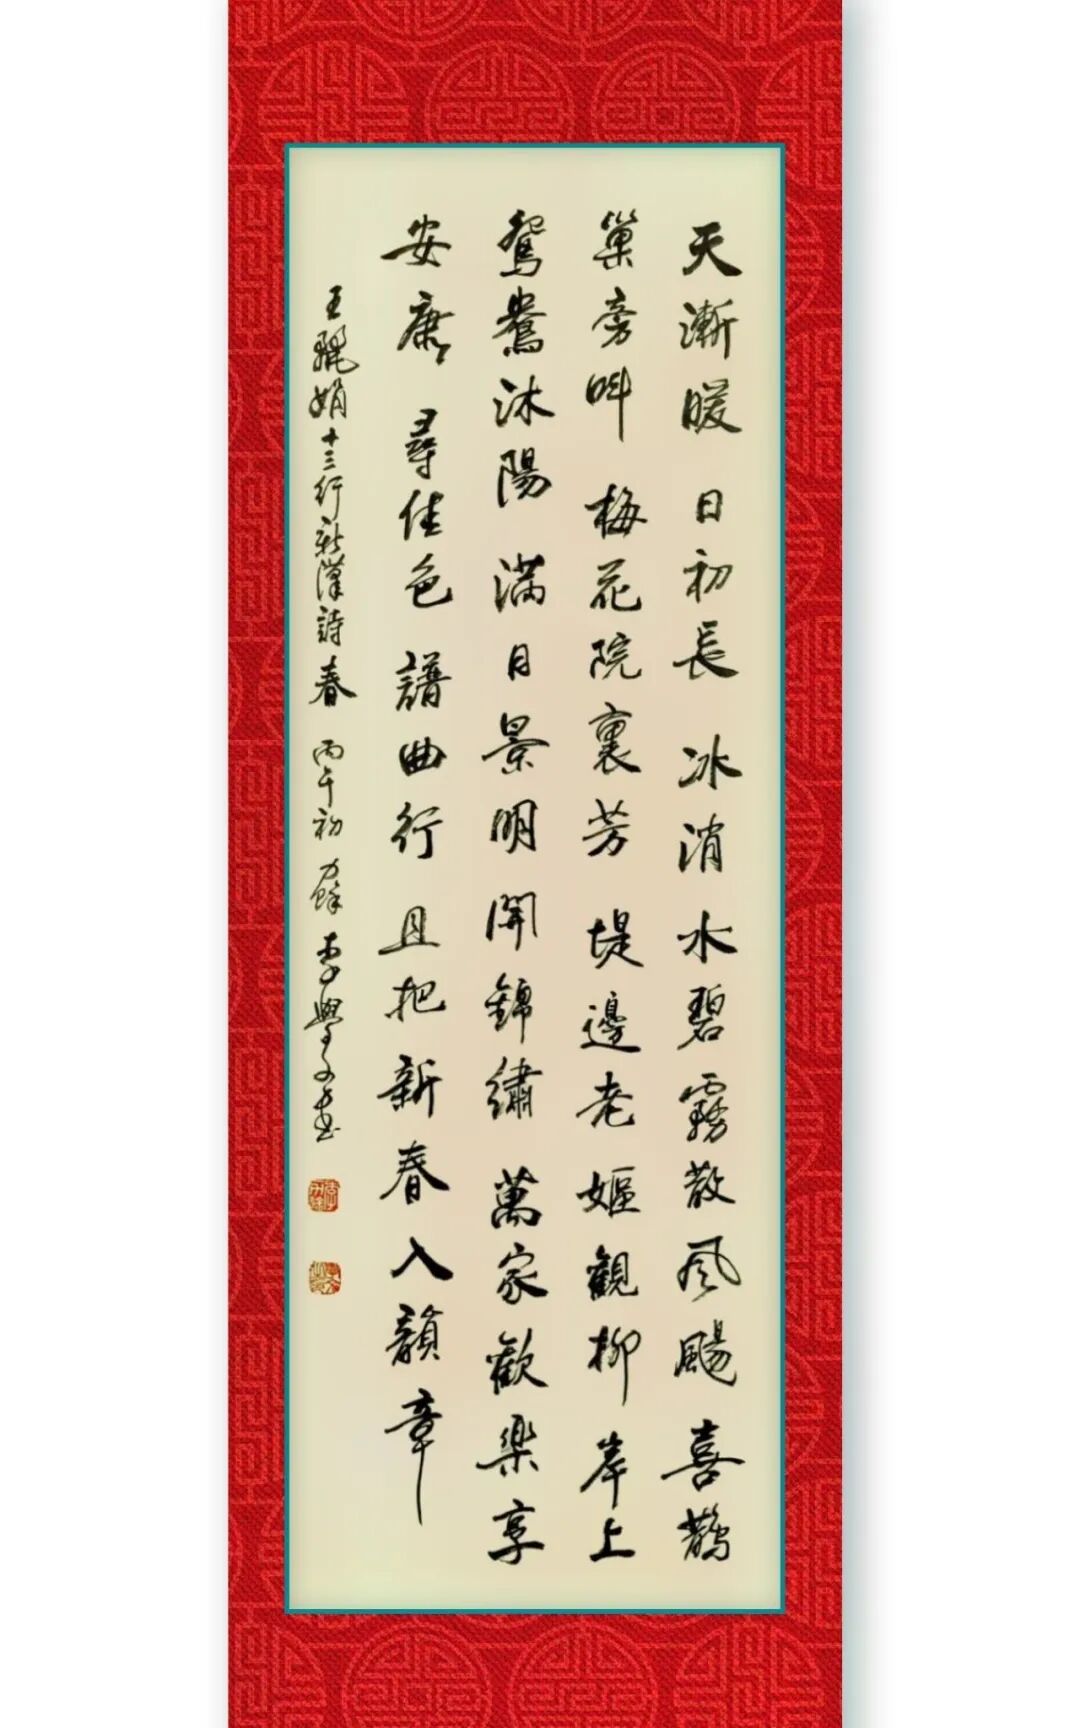 天漸暖 日初長 冰消水碧霧散風颺喜鵲
巢旁叫 梅花院裏芳 堤邊老嫗觀柳岸上
鴛鴦沐陽 滿目景明開錦繡 萬家歡樂享
安康 尋佳色 譜曲行 且把新春入韻章
王驪娟十三行新漢詩春 丙午初 李學文書